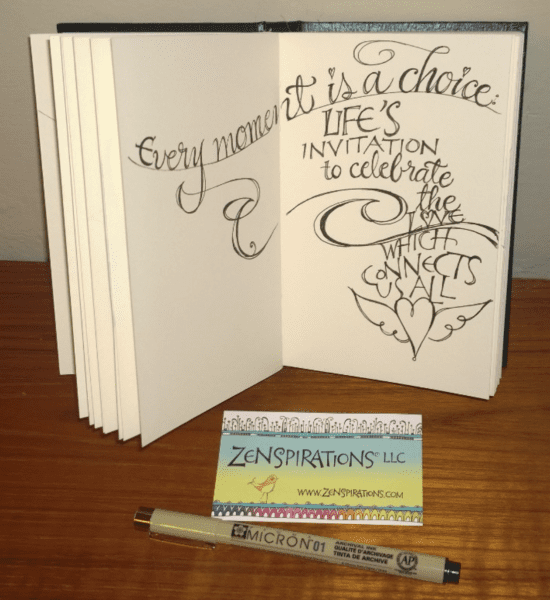 Every moment is a choice:
LIFE'S
INVITATION
to celebrate
the
LOVE
WHICH
CONNECTS
US ALL
ZENSPIRATIONS© LLC
WWW.ZENSPIRATIONS.COM
MICRON 01
QUALITÉ D'ARCHIVAGE
TINTA DE ARCHIVE
AP